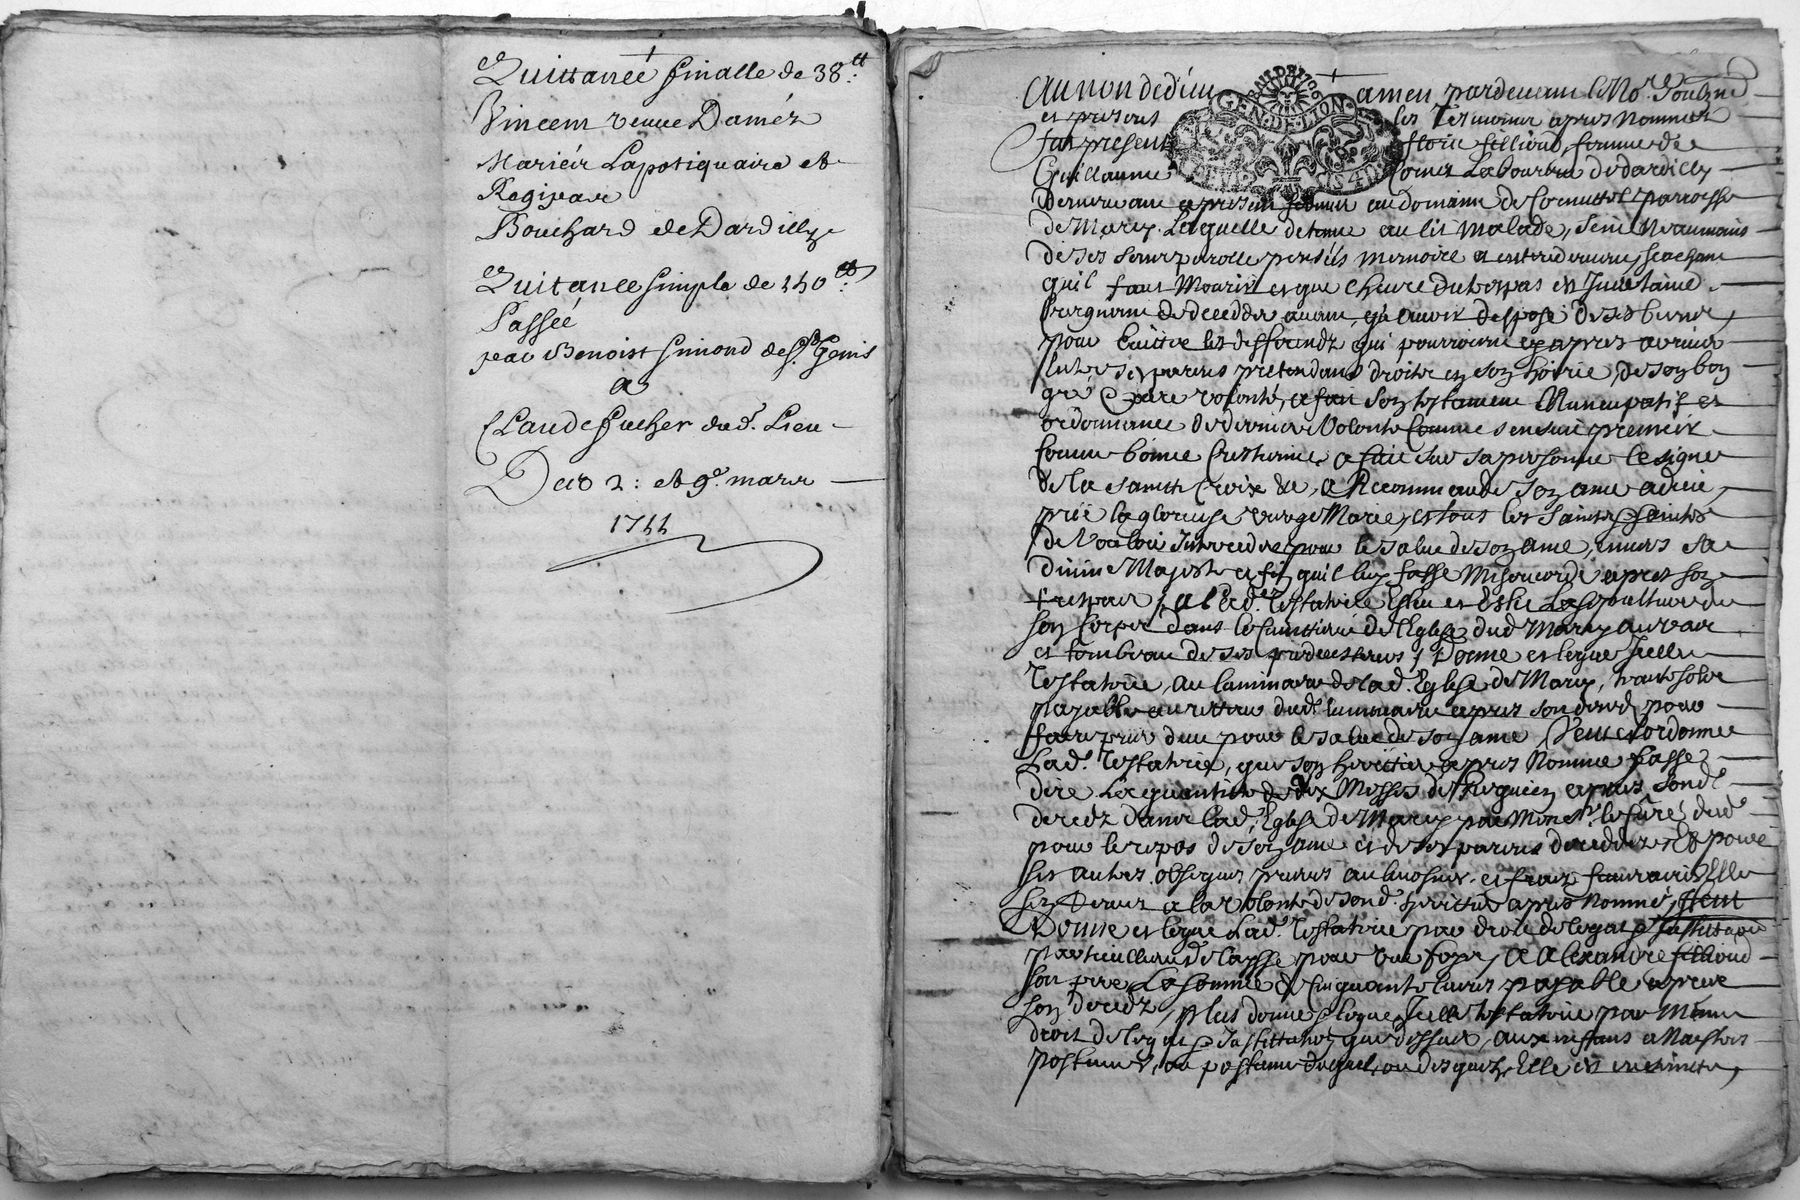 Quittance finalle de 38ᵗᵗ:
Vincent veuve Daméz
Marieér Lapotiquaire et
Regipar
Bouchard de Dardilly
Quitance simple de 140ᵗᵗ:
Passée
par Benoist simond de Sᵗ Genis
a
Claude fucher dud. Lieu
Des 2: et 9ᵉ. mars
1744
Au nom de dieu amen pardevant le No.ʳᵉ
et presents les Tesmoins apres Nommes
fut presente florie filliond, femme de
Guillaume Cornet Laboureur de dardilly
demeurant a present fermier au domaine de Cornuttel parroisse
de Marcy. Laquelle detenue au lit Malade, saine Neaumoins
de ses sens parolle pensées memoire et entendement, scachant
quil faut Mourir et que Lheure du trespas est Incertaine
Craignant de decedder avant, qu'avoir dispose de ses biens,
pour Esvitter les differendz qui pourroient cy apres arriver
entre ses parens pretendans droits en son hoirie, de son bon
gré & pure volonté, a fait son testament Nuncupatif et
ordonnance de derniere Volonté Comme sensuit premierˡ
comme bonne Crestienne, a fait sur sa personne le signe
de la sainte Croix &c, a Recommandé son ame a dieu,
prié la glorieuse vierge Marie, et tous les Saints & saintes
de Vouloir Interceder pour le salut de son ame, envers sa
divine Majesté a fin quil luy fasse Misericorde apres son
trespas, lad. Testatrice Eslu et Eslit La sepulture de
son Corps dans le Cimettiere de l'Eglise dud Marcy au vas
et tombeau de ses predecesseurs, Donne et legue Icelle
Testatrice, au luminaire de lad. Eglise de Marcy, trante sols
payable au recteur dud. luminaire apres son deceds pour
faire prier dieu pour le salut de son ame, Veut et ordonne
Lad. Testatrice, que son herittier apres Nommé fasse
dire La quantité de dix Messes de Requiem apres sond.
decedz dans lad. Eglise de Marcy par Monsʳ. le Curé dud.
pour le repos de son ame et de ses parens deceddez, Et pour
ses autres obseques prieres aulmosnes et fraiz funeraires Elle
sen Remet a la Volonté de sond. herittier apres Nommé, Item
Donne et legue Lad. Testatrice par droit de legat & Institution
particulliere & laysse pour une foys, A Alexandre filliond
son frere, La somme de Cinquante livres payable apres
son decedz, plus donne & legue Icelle testatrice par Même
droit de legat & Institution que dessus, aux enffans a Naistre
postumes, ou postume duquel, ou desquelz Elle est enceinte,